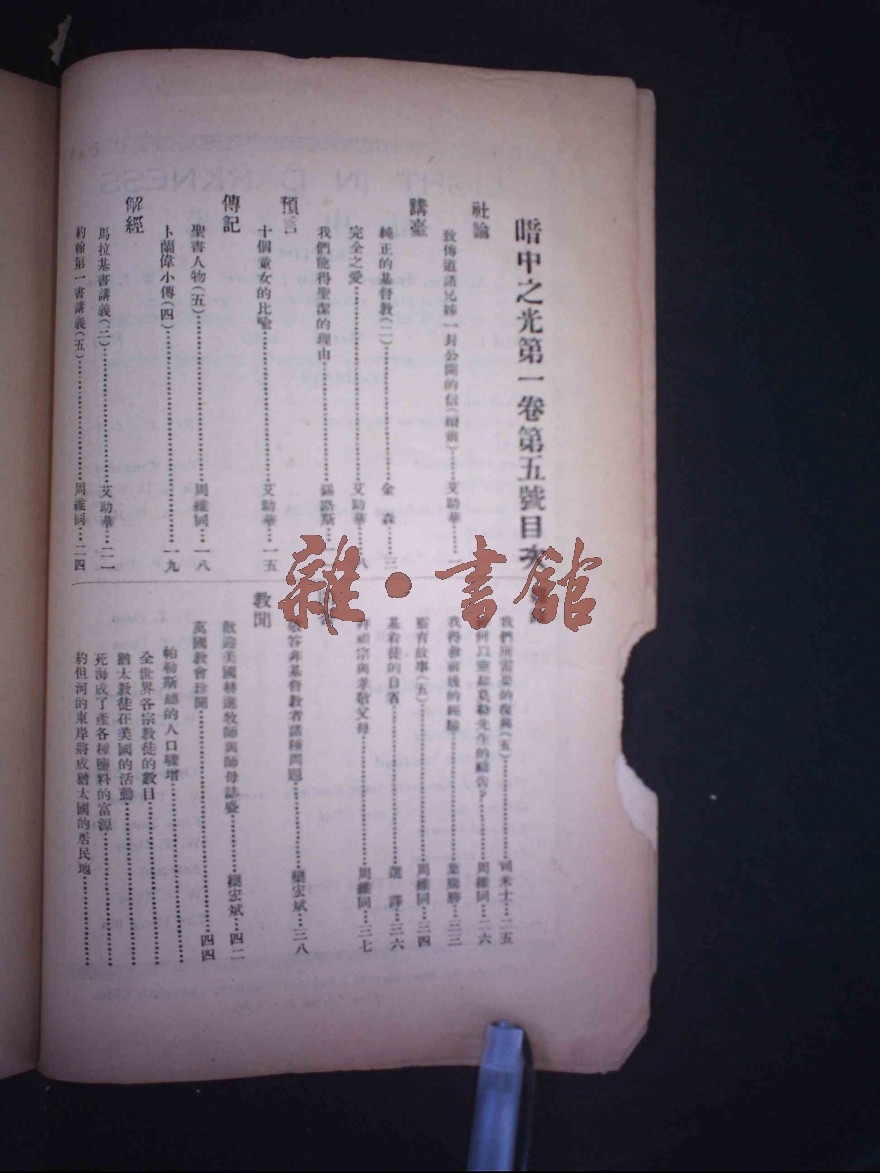 暗中之光第一卷第五號目次
社論
致傳道諸兄姊一封公開的信(續前)……艾助華…一
講臺
純正的基督教(二)……金森…三
完全之愛……艾助華…八
我們能得聖潔的理由……錫路斯…一
預言
十個童女的比喻……艾助華…一五
傳記
聖書人物(五)……周維同…一八
卜蘭偉小傳(四)……一九
解經
馬拉基書講義(二)……艾助華…二一
約翰第一書講義(五)……周維同…二四
我們所需要的復興(五)……司米士…二五
何以車却莫勒先生的禱告……周維同…二六
我得救前後的經驗……葉龍勝…三三
舊有故事(五)……周維同…三四
基督徒的自省……選譯…三六
拜祖宗與孝敬父母……周維同…三七
敬答非基督教者諸種問題……欒宏斌…三八
教聞
歡迎美國林進牧師與師母誌盛……欒宏斌…四二
萬國教會珍聞……四四
帕勒斯聽的人口驟增……
全世界各宗教徒的數目……
猶太教徒在美國的活動……
死海成了產各種鹽料的富源……
約但河的東岸將成猶太國的居民地……
雜·書館